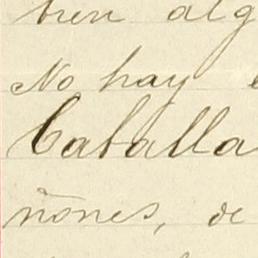 bien alg
No hay e
Caballa
ñones, de